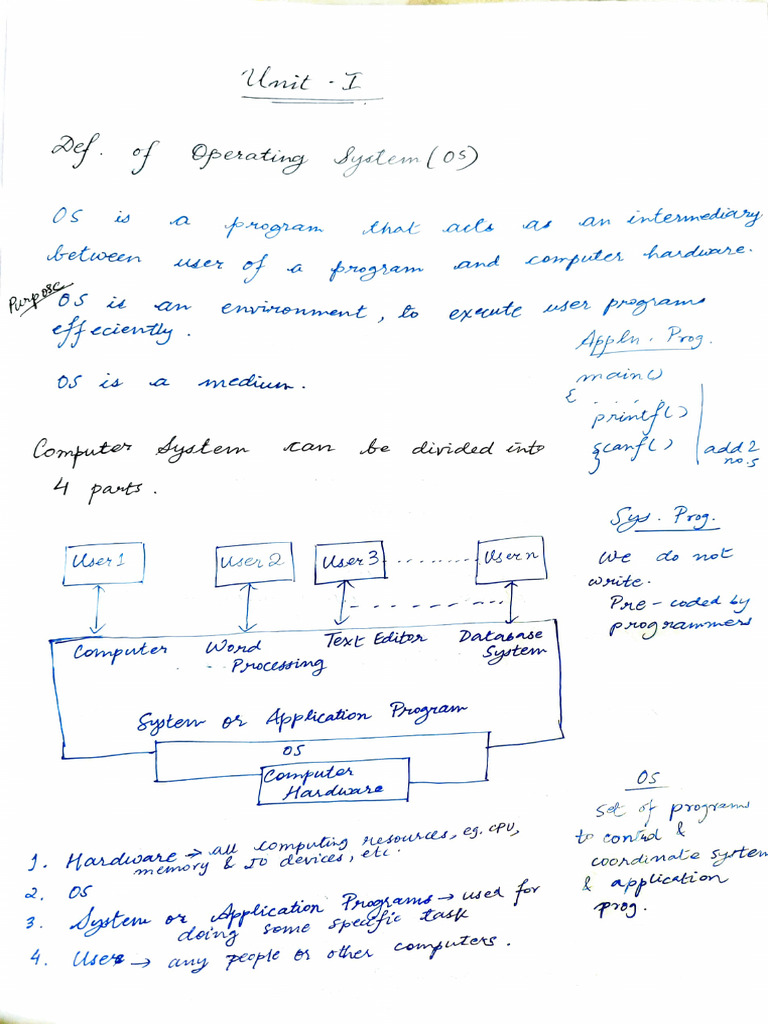 Unit - I
Def. of Operating System (OS)
OS is a program that acts as an intermediary
between user of a program and computer hardware.
Purpose OS is an environment, to execute user programs
effeciently.
OS is a medium.
Appln. Prog.
main()
{ . . . . . .
printf()
scanf()
}
add 2
no.s
Computer System can be divided into
4 parts.
Sys. Prog.
We do not
write.
Pre-coded by
programmers
User 1 User 2 User 3 ........ User n
Computer Word Text Editor Database
Processing System
System or Application Program
OS
Computer
Hardware
OS
set of programs
to control &
coordinate system
& application
prog.
1. Hardware → all computing resources, eg. CPU,
memory & IO devices, etc.
2. OS
3. System or Application Programs → used for
doing some specific task
4. Users → any people or other computers.